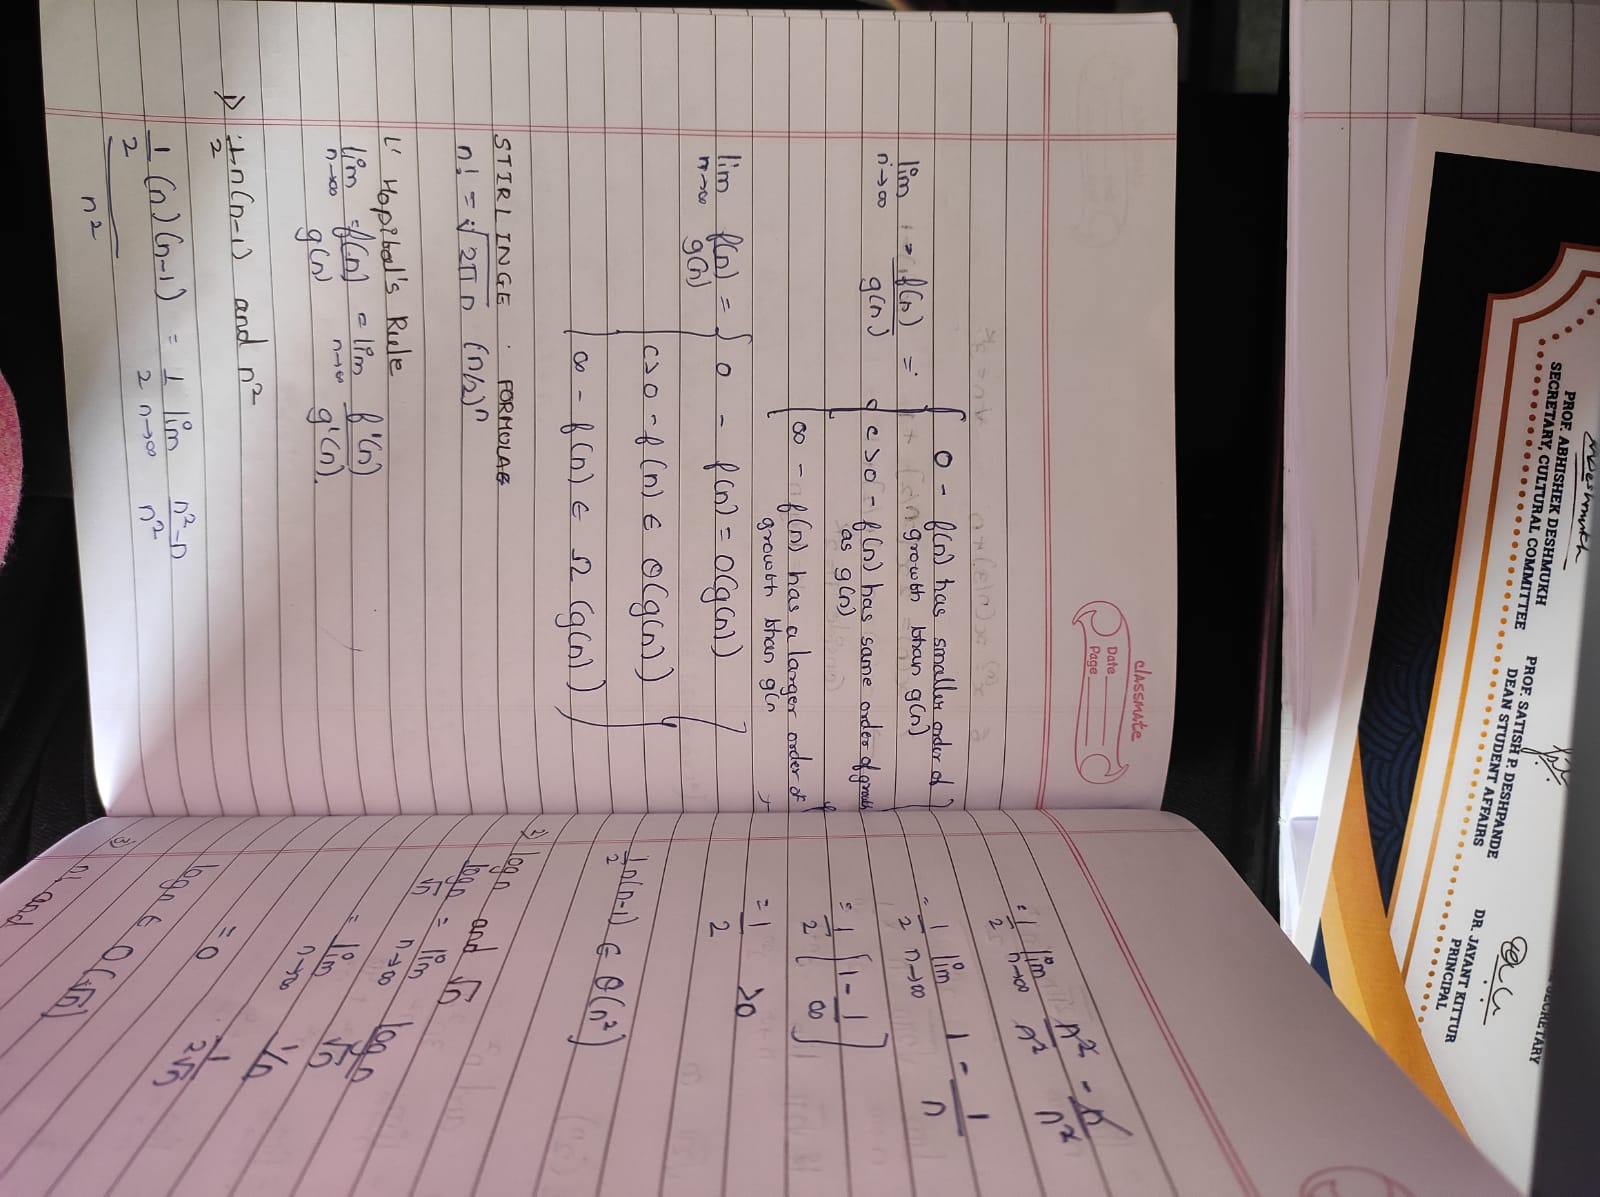 PROF. ABHISHEK DESHMUKH
SECRETARY, CULTURAL COMMITTEE
PROF. SATISH P. DESHPANDE
DEAN STUDENT AFFAIRS
SECRETARY
DR. JAYANT KITTUR
PRINCIPAL
classmate
Date
Page
lim n→∞ = f(n)/g(n) = { 0 - f(n) has smaller order of
growth than g(n)
c>0 - f(n) has same order of growth
as g(n)
∞ - f(n) has a larger order of
growth than g(n
lim n→∞ f(n)/g(n) = { 0 - f(n) = O(g(n))
c>0 - f(n) ∈ Θ(g(n))
∞ - f(n) ∈ Ω (g(n)) }
STIRLINGE FORMULAE
n! = √2πn (n/2)ⁿ
L' Hopibal's Rule
lim n→∞ =f(n)/g(n) = lim n→∞ f'(n)/g'(n).
1) 1/2 n(n-1) and n²
1/2 (n)(n-1) / n² = 1/2 lim n→∞ n²-n/n²
= 1/2 lim n→∞ n²/n² - n/n²
= 1/2 lim n→∞ 1 - 1/n
= 1/2 [1 - 1/∞]
= 1/2 >0
1/2 n(n-1) ∈ Θ(n²)
2) logn and √n
logn/√n = lim n→∞ logn/√n
= lim n→∞ 1/n / 1/2√n
= 0
logn ∈ O(√n)
3) n! and